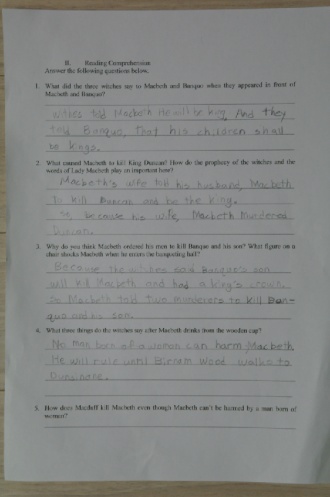 II. Reading Comprehension
Answer the following questions below.
1. What did the three witches say to Macbeth and Banquo when they appeared in front of
Macbeth and Banquo?
told Macbeth He will be king. And they
told Banquo, That his children shall
be kings.
2. What caused Macbeth to kill King Duncan? How do the prophecy of the witches and the
words of Lady Macbeth play an important here?
Macbeth's wife told his husband, Macbeth
to kill Duncan and be the king.
So, because his wife, Macbeth murdered
Duncan.
3. Why do you think Macbeth ordered his men to kill Banquo and his son? What figure on a
chair shocks Macbeth when he enters the banqueting hall?
Because the witches said Banquo's son
will kill Macbeth and had a king's crown.
So Macbeth told two murderers to kill Ban-
quo and his son.
4. What three things do the witches say after Macbeth drinks from the wooden cup?
No man born of a woman can harm Macbeth
He will rule until Birnam Wood walks to
Dunsinane.
5. How does Macduff kill Macbeth even though Macbeth can't be harmed by a man born of
women?